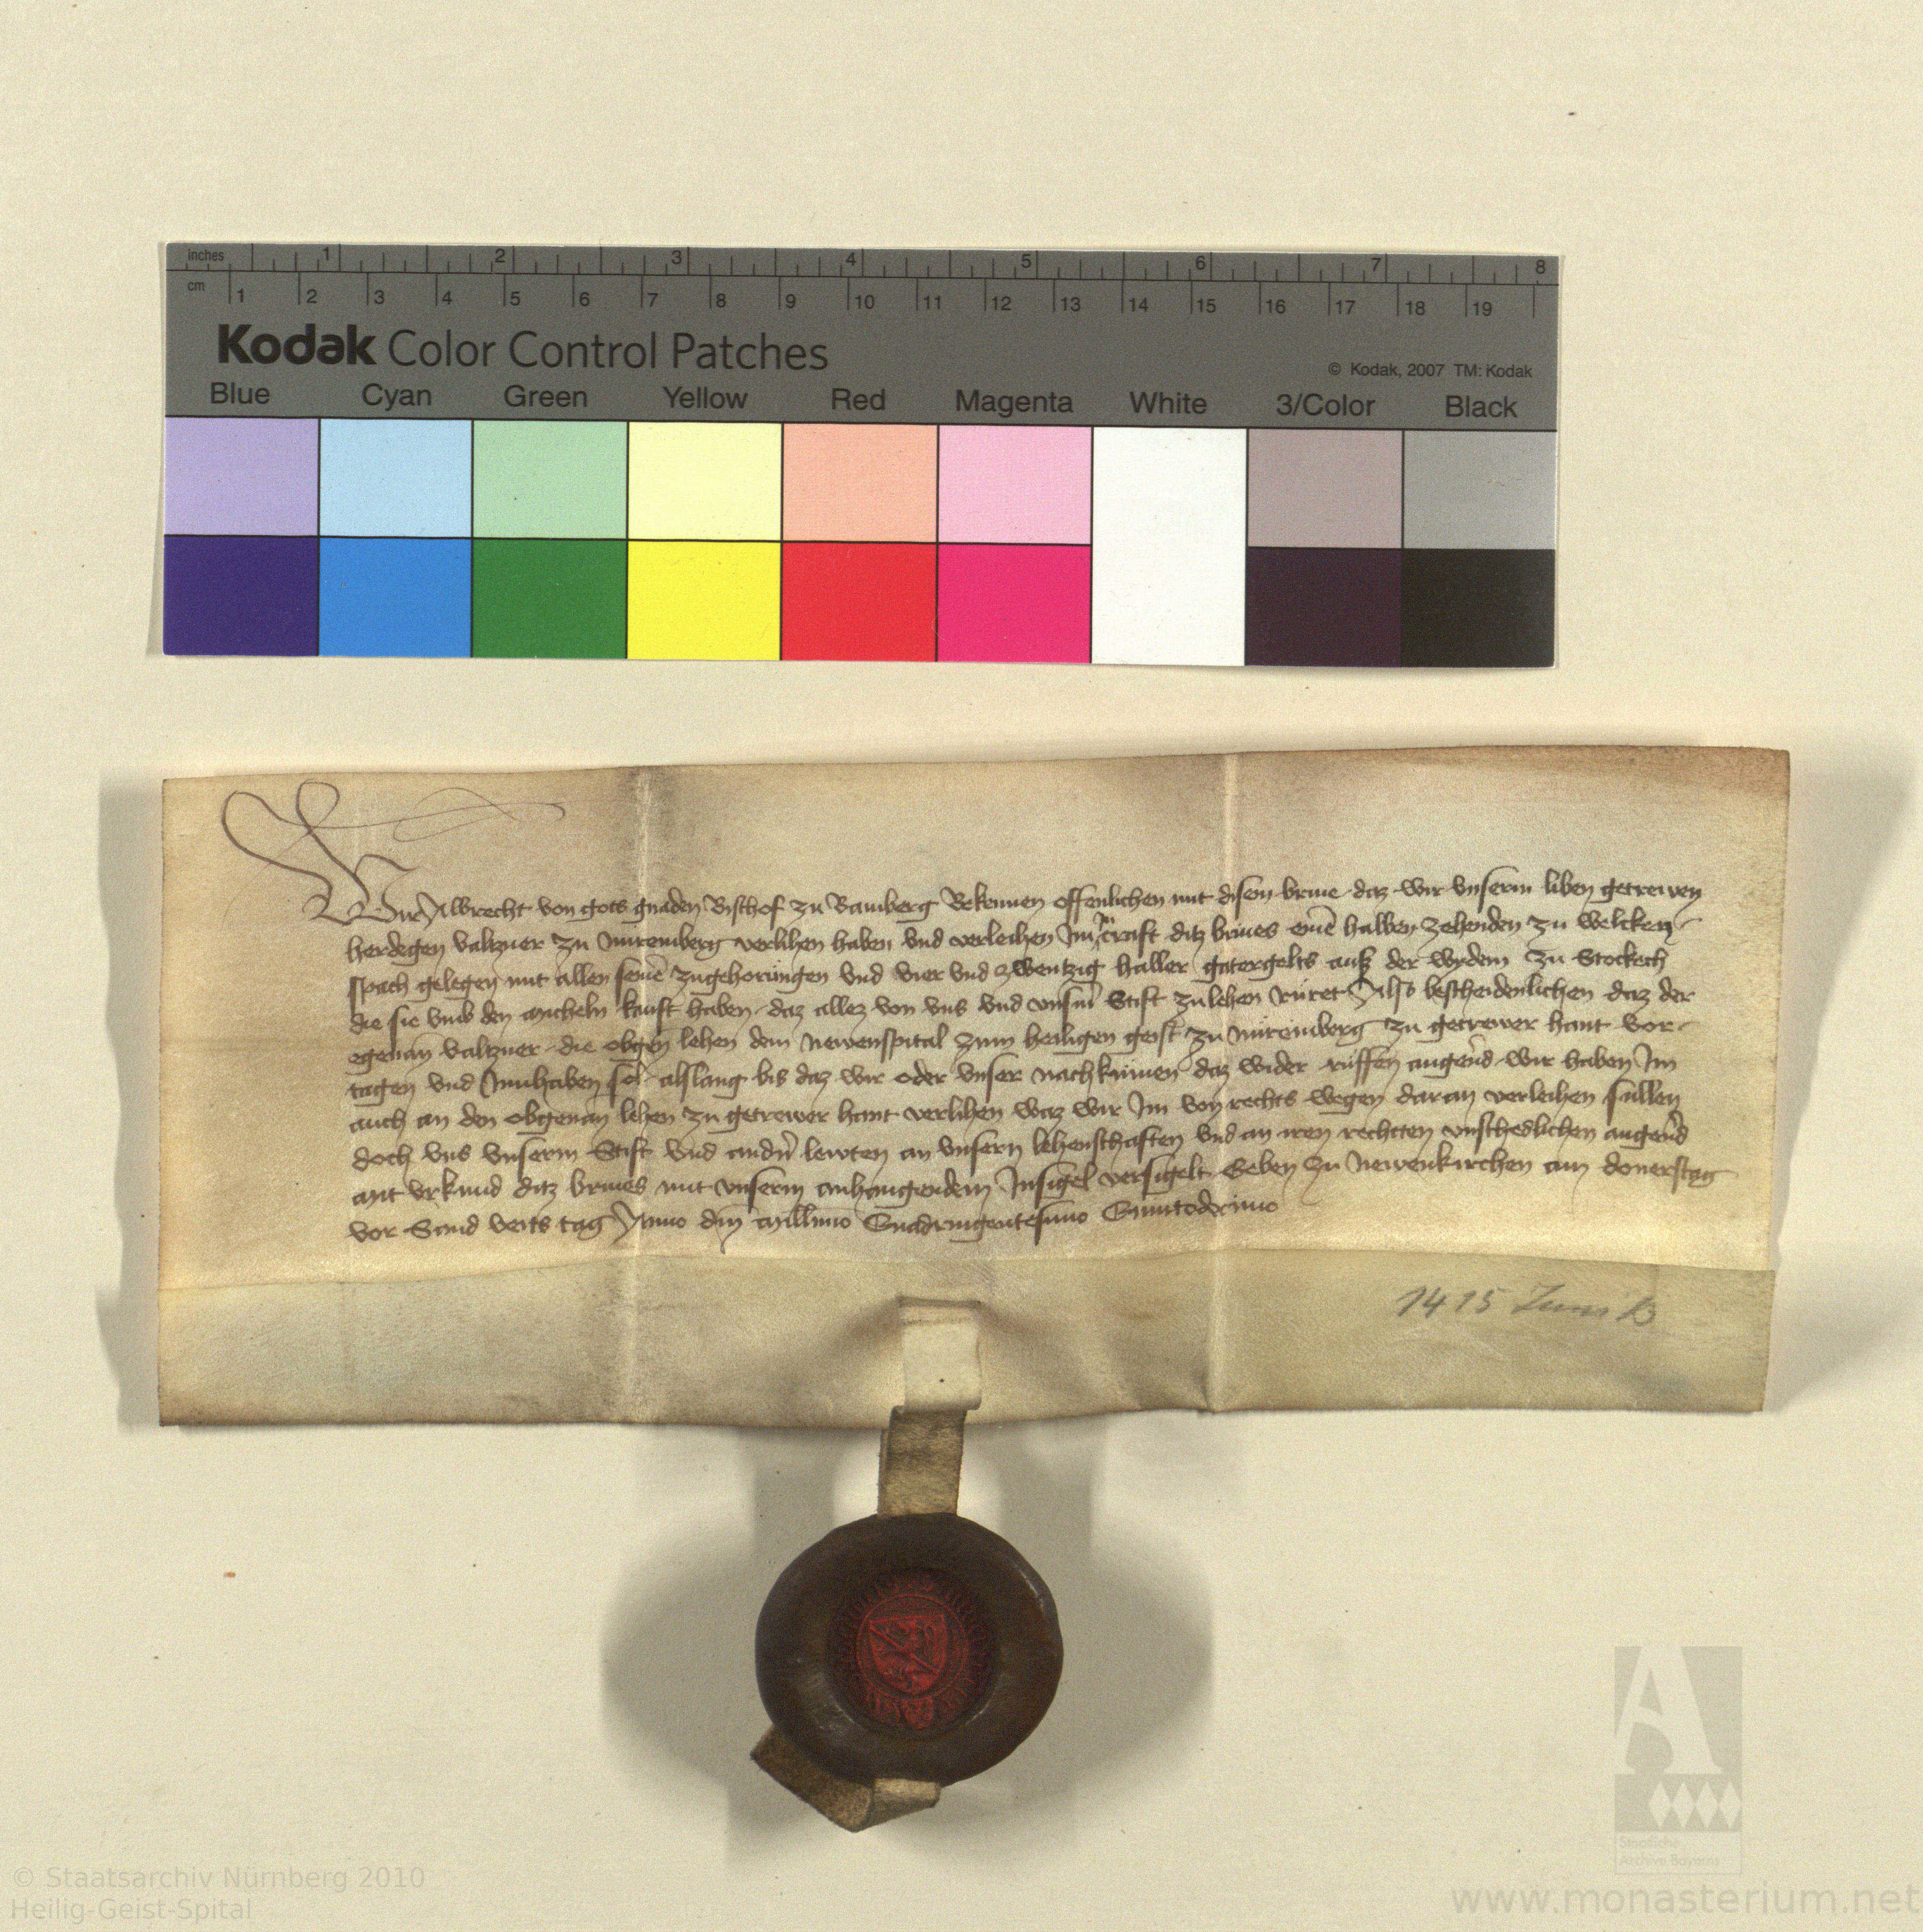 inches 1 2 3 4 5 6 7 8
cm 1 2 3 4 5 6 7 8 9 10 11 12 13 14 15 16 17 18 19
Kodak Color Control Patches
© Kodak, 2007 TM: Kodak
Blue Cyan Green Yellow Red Magenta White 3/Color Black
Wir Albrecht von gots gnaden Bischof zu Bamberg Bekennen offenlichen mit disem brieue daz wir vnserm liben getrewen
herdegen valtzner zu Nuremberg verlihen haben vnd verleihen Im in craft ditz brieues einē halben zehenden zu welcken
spach gelegen mit allen seinē zugehorungen vnd vier vnd zwentzig haller gatergelts auß der wydem zu Stockech
die sie vmb den kauft haben daz allez von vns vnd vnserm Stift zulehen ruret Also bescheidenlichen daz der
egenan valtzner die obgen lehen dem Newenspital zum heiligen geist zu Nuremberg zu getrewer hant vor
tagen vnd Innhaben sol alslang bis daz wir oder vnser nachkumen daz wider ruffen wir haben Im
auch an den obgenan lehen zu getrewer hant verlihen waz wir Im von rechts wegen daran verleihen sullen
doch vns vnserm Stift vnd andn lewten an vnsern lehenschaften vnd an iren rechten vnschedlichen
Mit vrkund ditz brieues mit vnserm anhangendem Insigel versigelt Geben zu Newenkirchen am donerstag
vor Sand veits tag Anno dm Millmo Quadringentesimo Quintodecimo
1415 Juni 13
© Staatsarchiv Nürnberg 2010
Heilig-Geist-Spital
Staatliche
Archive Bayerns
www.monasterium.net